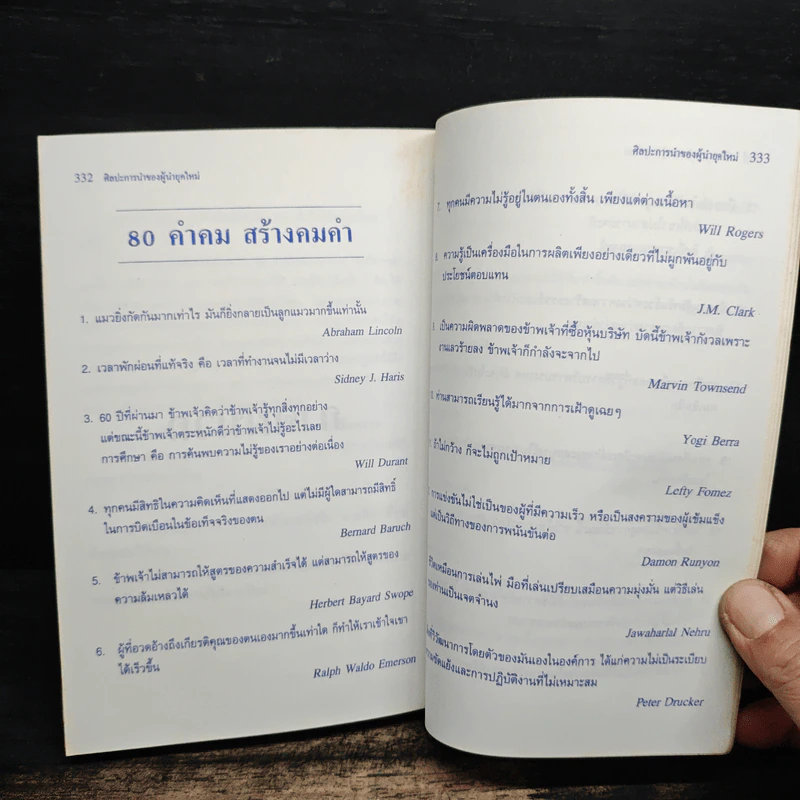 332 ศิลปะการนำของผู้นำยุคใหม่
80 คำคม สร้างคมคำ
1. แมวยิ่งกัดกันมากเท่าไร มันก็ยิ่งกลายเป็นลูกแมวมากขึ้นเท่านั้น
Abraham Lincoln
2. เวลาพักผ่อนที่แท้จริง คือ เวลาที่ทำงานจนไม่มีเวลาว่าง
Sidney J. Haris
3. 60 ปีที่ผ่านมา ข้าพเจ้าคิดว่าข้าพเจ้ารู้ทุกสิ่งทุกอย่าง
แต่ขณะนี้ข้าพเจ้าตระหนักดีว่าข้าพเจ้าไม่รู้อะไรเลย
การศึกษา คือ การค้นพบความไม่รู้ของเราอย่างต่อเนื่อง
Will Durant
4. ทุกคนมีสิทธิในความคิดเห็นที่แสดงออกไป แต่ไม่มีผู้ใดสามารถมีสิทธิ์
ในการบิดเบือนในข้อเท็จจริงของตน
Bernard Baruch
5. ข้าพเจ้าไม่สามารถให้สูตรของความสำเร็จได้ แต่สามารถให้สูตรของ
ความล้มเหลวได้
Herbert Bayard Swope
6. ผู้ที่อวดอ้างถึงเกียรติคุณของตนเองมากขึ้นเท่าใด ก็ทำให้เราเข้าใจเขา
ได้เร็วขึ้น
Ralph Waldo Emerson
ศิลปะการนำของผู้นำยุคใหม่ 333
7. ทุกคนมีความไม่รู้อยู่ในตนเองทั้งสิ้น เพียงแต่ต่างเนื้อหา
Will Rogers
8. ความรู้เป็นเครื่องมือในการผลิตเพียงอย่างเดียวที่ไม่ผูกพันอยู่กับ
ประโยชน์ตอบแทน
J.M. Clark
เป็นความผิดพลาดของข้าพเจ้าที่ซื้อหุ้นบริษัท บัดนี้ข้าพเจ้ากังวลเพราะ
งานเลวร้ายลง ข้าพเจ้าก็กำลังจะจากไป
Marvin Townsend
ท่านสามารถเรียนรู้ได้มากจากการเฝ้าดูเฉยๆ
Yogi Berra
ถ้าไม่กว้าง ก็จะไม่ถูกเป้าหมาย
Lefty Fomez
การแข่งขันไม่ใช่เป็นของผู้ที่มีความเร็ว หรือเป็นสงครามของผู้เข้มแข็ง
แต่เป็นวิถีทางของการพนันขันต่อ
Damon Runyon
ชีวิตเหมือนการเล่นไพ่ มือที่เล่นเปรียบเสมือนความมุ่งมั่น แต่วิธีเล่น
ของท่านเป็นเจตจำนง
Jawaharlal Nehru
วิวัฒนาการโดยตัวของมันเองในองค์การ ได้แก่ความไม่เป็นระเบียบ
ความขัดแย้งและการปฏิบัติงานที่ไม่เหมาะสม
Peter Drucker